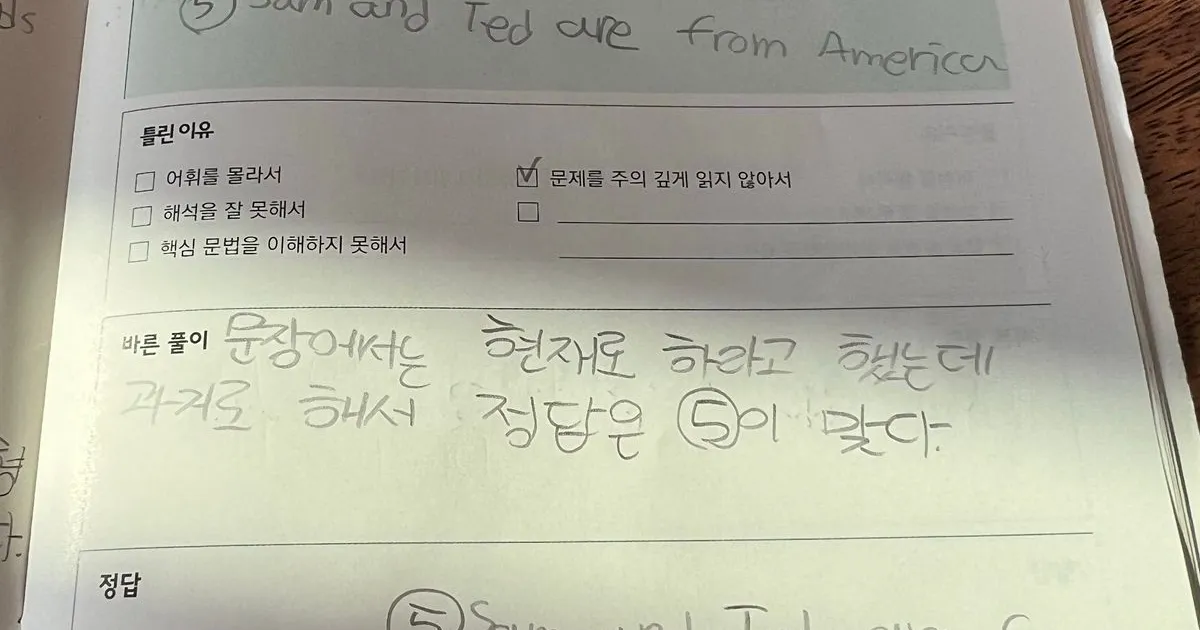 ⑤ Sam and Ted are from America
틀린 이유
☐ 어휘를 몰라서
☑ 문제를 주의 깊게 읽지 않아서
☐ 해석을 잘 못해서
☐
☐ 핵심 문법을 이해하지 못해서
바른 풀이 문장에서는 현재로 하라고 했는데
과거로 해서 정답은 ⑤이 맞다.
정답
⑤ Sam and Ted are